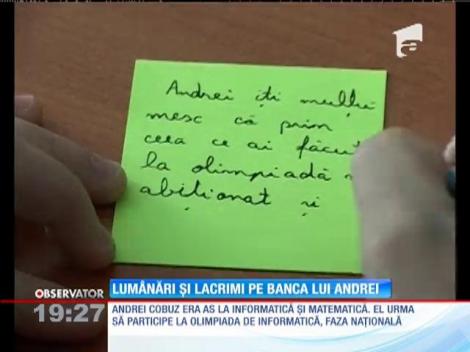 Andrei îți mulțu
mesc că prin
ceea ce ai făcut
la olimpiadă
abiționat și
LUMÂNĂRI ȘI LACRIMI PE BANCA LUI ANDREI
OBSERVATOR
19:27
ANDREI COBUZ ERA AS LA INFORMATICĂ ȘI MATEMATICĂ. EL URMA
SĂ PARTICIPE LA OLIMPIADA DE INFORMATICĂ, FAZA NAȚIONALĂ